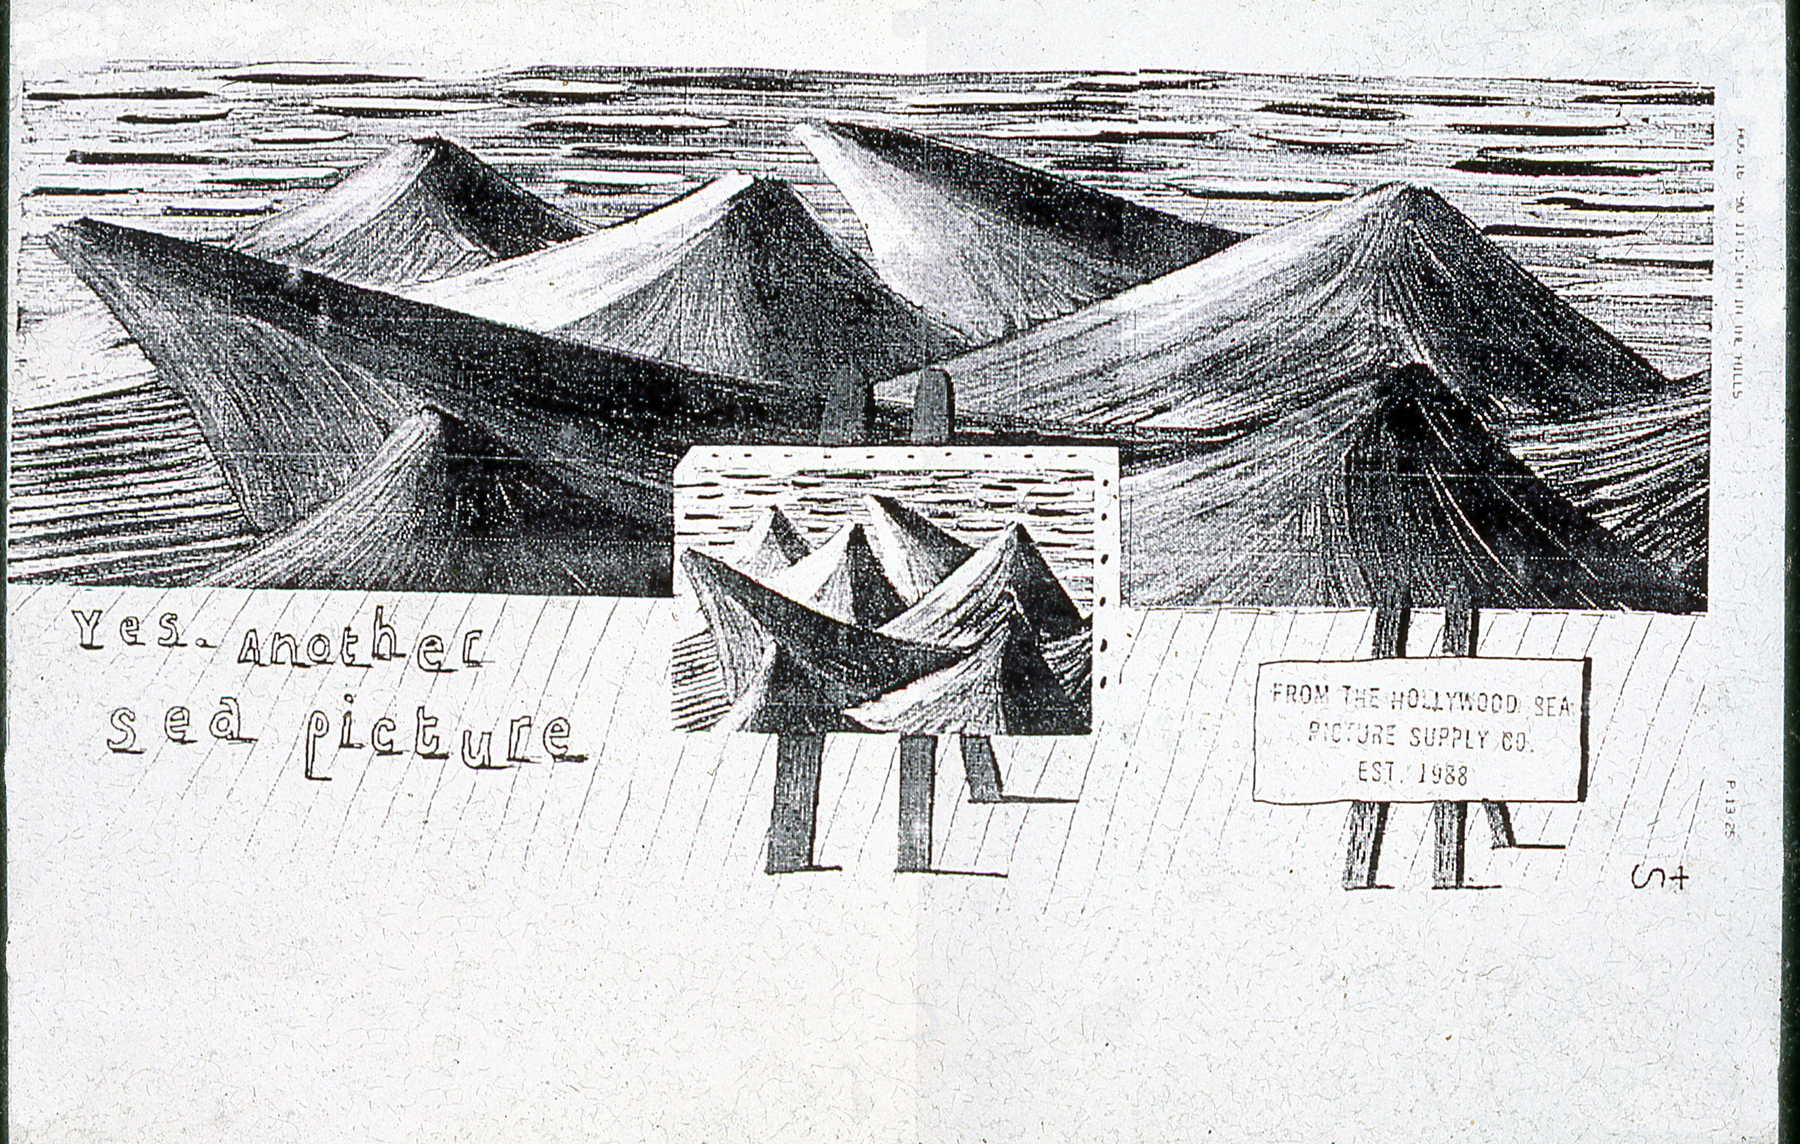 Yes. Another
sea picture
FROM THE HOLLYWOOD SEA
PICTURE SUPPLY CO.
EST. 1988
IN THE HILLS
P.13